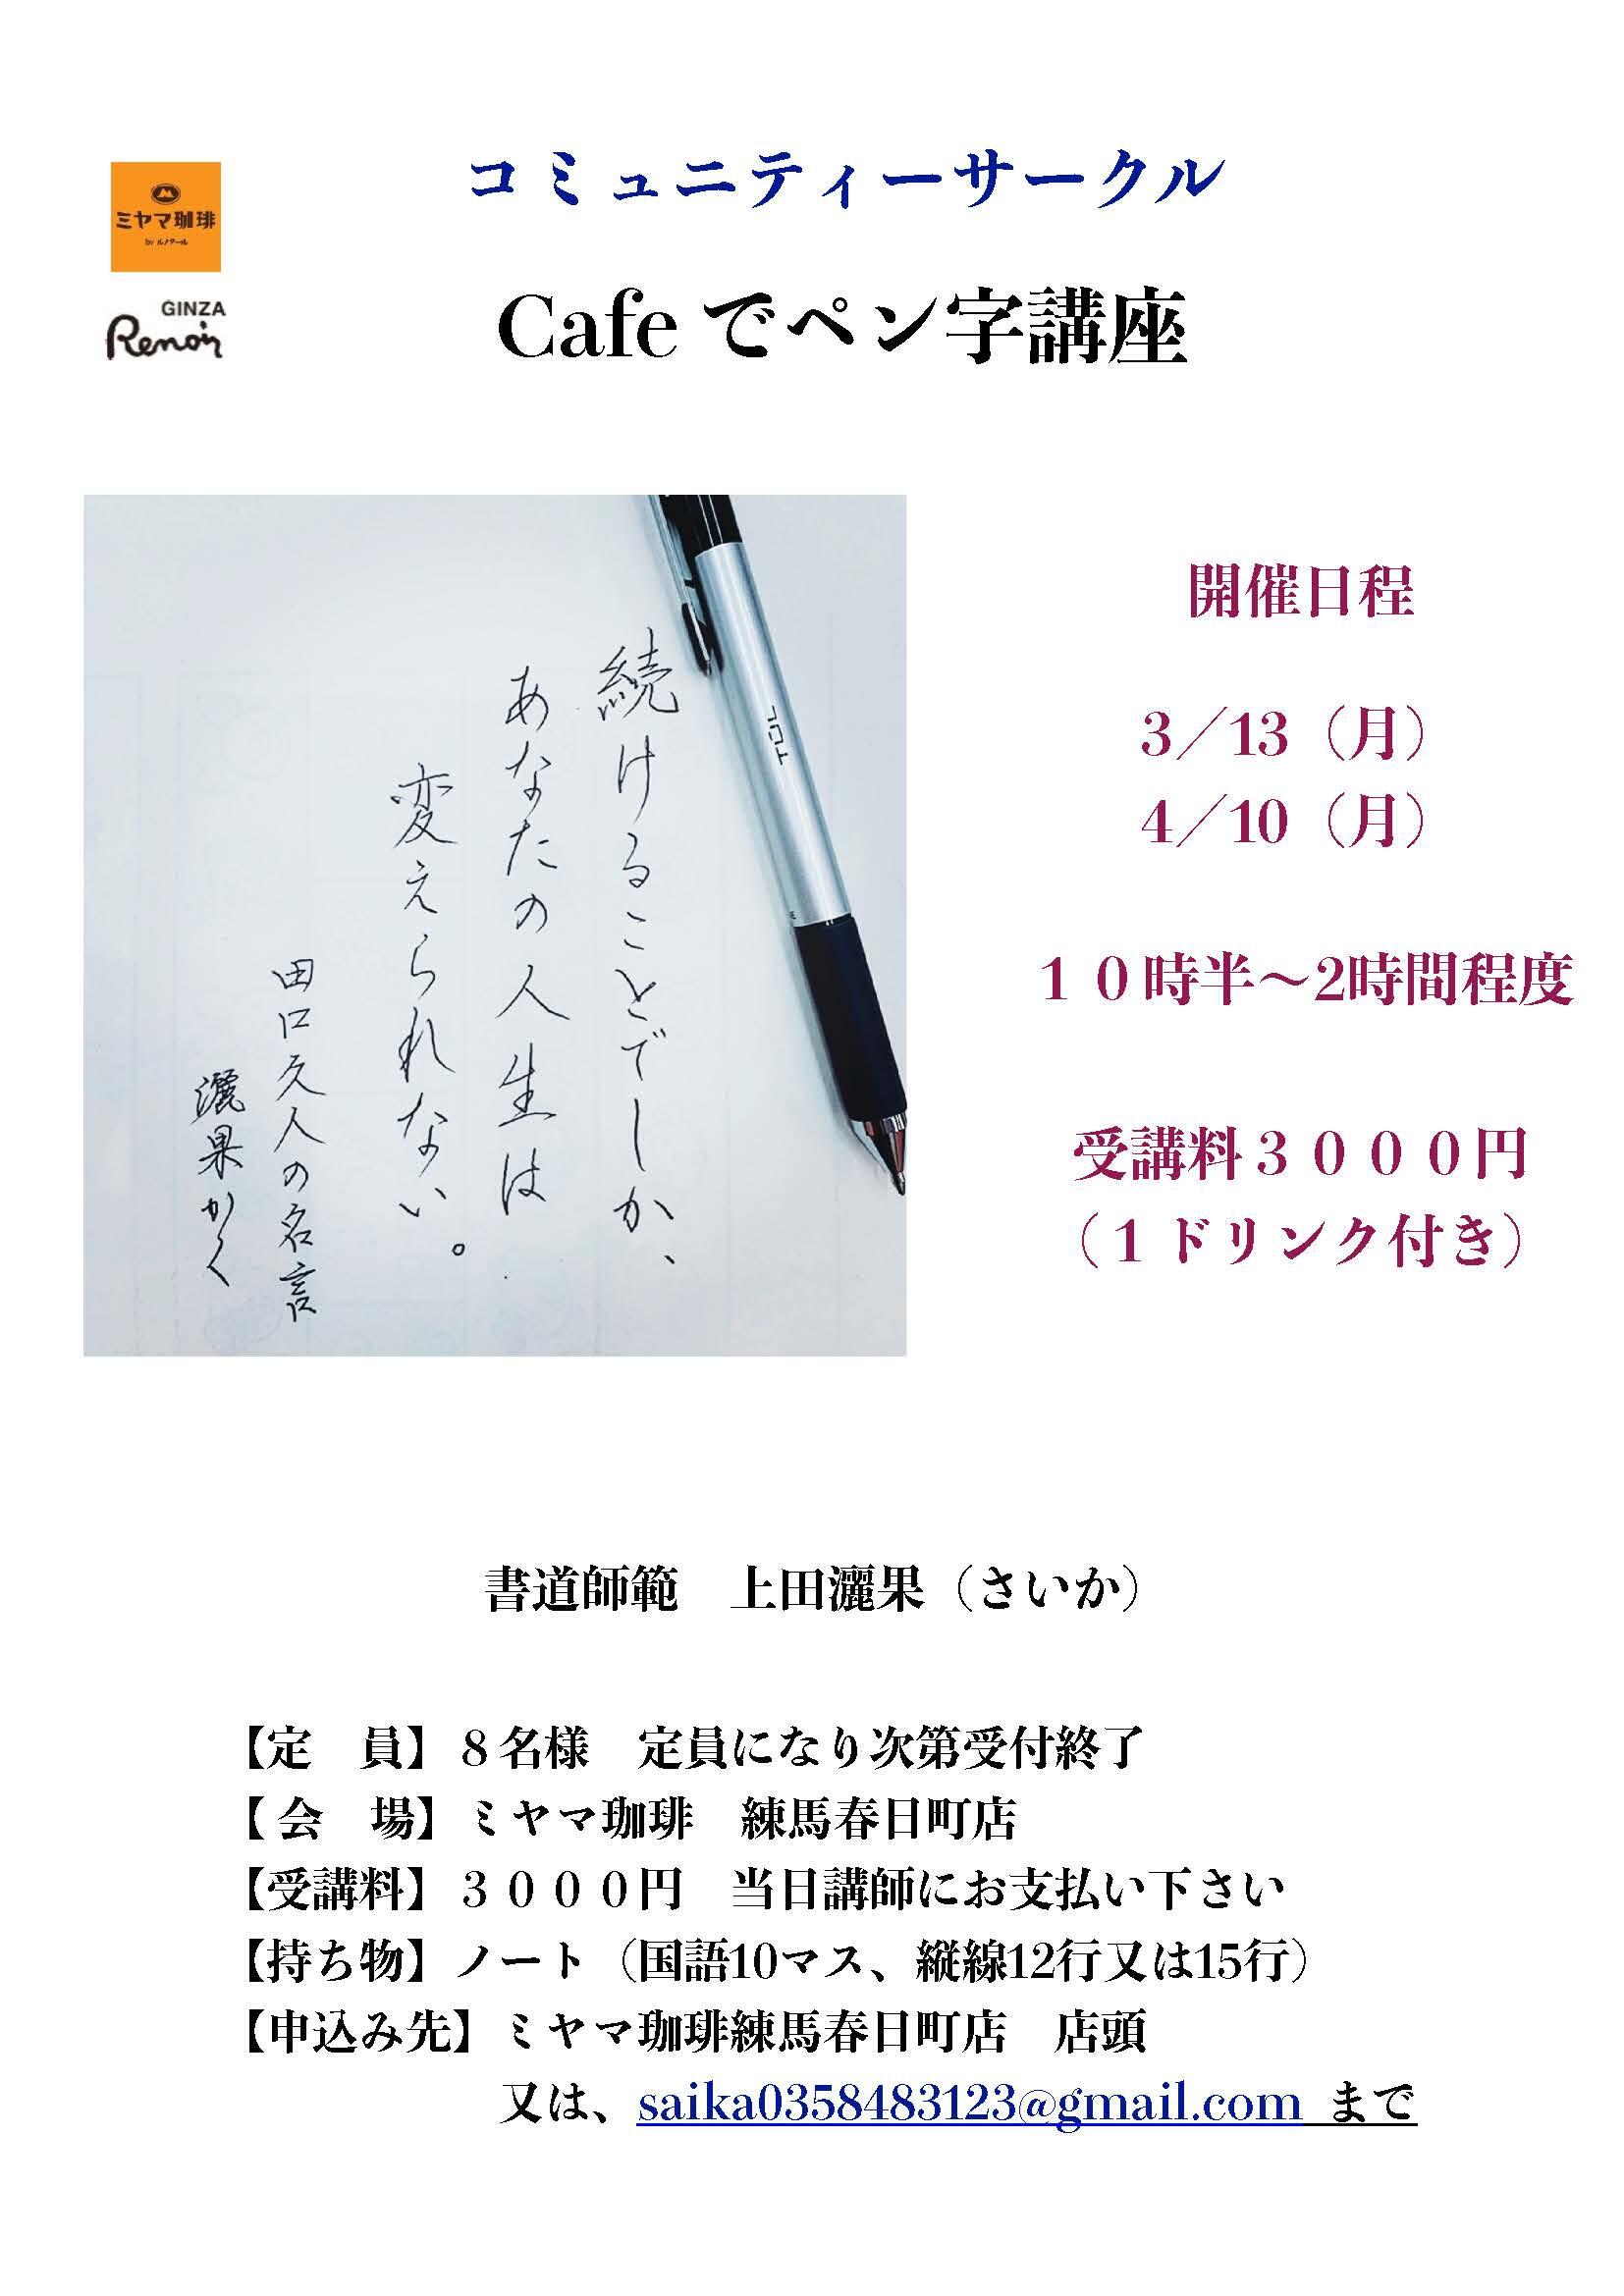 コミュニティーサークル
ミヤマ珈琲
by ルノアール
GINZA
Renoir
Cafe でペン字講座
続けることでしか、
あなたの人生は
変えられない。
田口久人の名言
灑果かく
TUL
開催日程
3／13（月）
4／10（月）
１０時半～2時間程度
受講料３０００円
（１ドリンク付き）
書道師範　上田灑果（さいか）
【定　員】８名様　定員になり次第受付終了
【会　場】ミヤマ珈琲　練馬春日町店
【受講料】３０００円　当日講師にお支払い下さい
【持ち物】ノート（国語10マス、縦線12行又は15行）
【申込み先】ミヤマ珈琲練馬春日町店　店頭
又は、saika0358483123@gmail.com まで